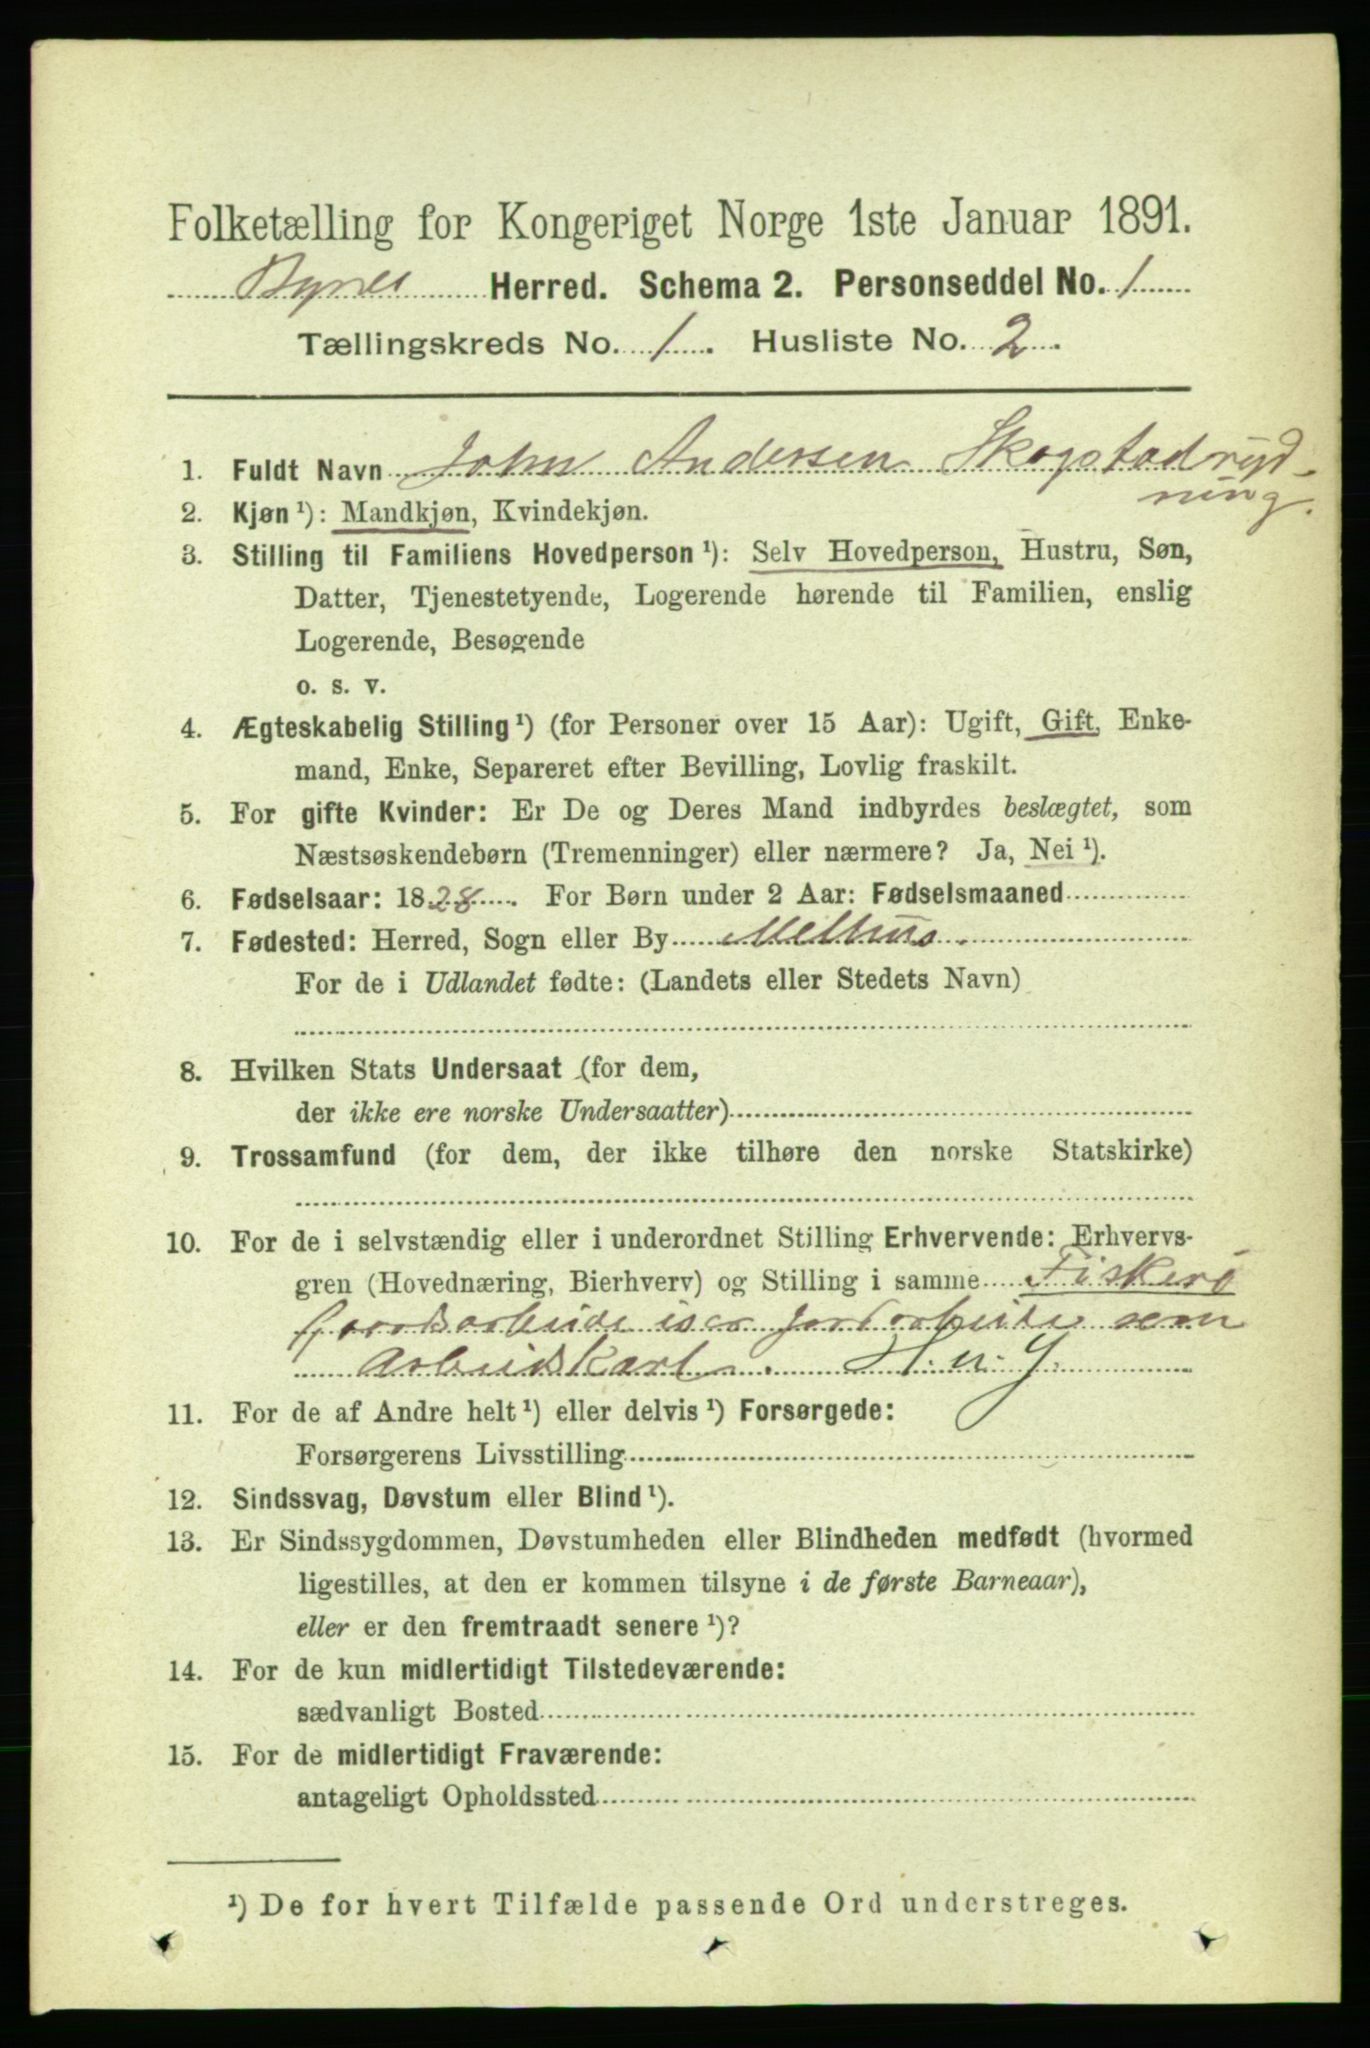 Folketælling for Kongeriget Norge 1ste Januar 1891.
Bynes Herred. Schema 2. Personseddel No. 1
Tællingskreds No. 1. Husliste No. 2.
1. Fuldt Navn John Andersen Skogstadryd-
ning.
2. Kjøn ¹): Mandkjøn, Kvindekjøn.
3. Stilling til Familiens Hovedperson ¹): Selv Hovedperson, Hustru, Søn,
Datter, Tjenestetyende, Logerende hørende til Familien, enslig
Logerende, Besøgende
o. s. v.
4. Ægteskabelig Stilling ¹) (for Personer over 15 Aar): Ugift, Gift, Enke-
mand, Enke, Separeret efter Bevilling, Lovlig fraskilt.
5. For gifte Kvinder: Er De og Deres Mand indbyrdes beslægtet, som
Næstsøskendebørn (Tremenninger) eller nærmere? Ja, Nei ¹).
6. Fødselsaar: 1828. For Børn under 2 Aar: Fødselsmaaned
7. Fødested: Herred, Sogn eller By Melhus.
For de i Udlandet fødte: (Landets eller Stedets Navn)
8. Hvilken Stats Undersaat (for dem,
der ikke ere norske Undersaatter)
9. Trossamfund (for dem, der ikke tilhøre den norske Statskirke)
10. For de i selvstændig eller i underordnet Stilling Erhvervende: Erhvervs-
gren (Hovednæring, Bierhverv) og Stilling i samme Fiskeri
Gaardsarbeide Jordarbeide som
Arbeidskarl. H. n. G.
11. For de af Andre helt ¹) eller delvis ¹) Forsørgede:
Forsørgerens Livsstilling
12. Sindssvag, Døvstum eller Blind ¹).
13. Er Sindssygdommen, Døvstumheden eller Blindheden medfødt (hvormed
ligestilles, at den er kommen tilsyne i de første Barneaar),
eller er den fremtraadt senere ¹)?
14. For de kun midlertidigt Tilstedeværende:
sædvanligt Bosted
15. For de midlertidigt Fraværende:
antageligt Opholdssted
¹) De for hvert Tilfælde passende Ord understreges.